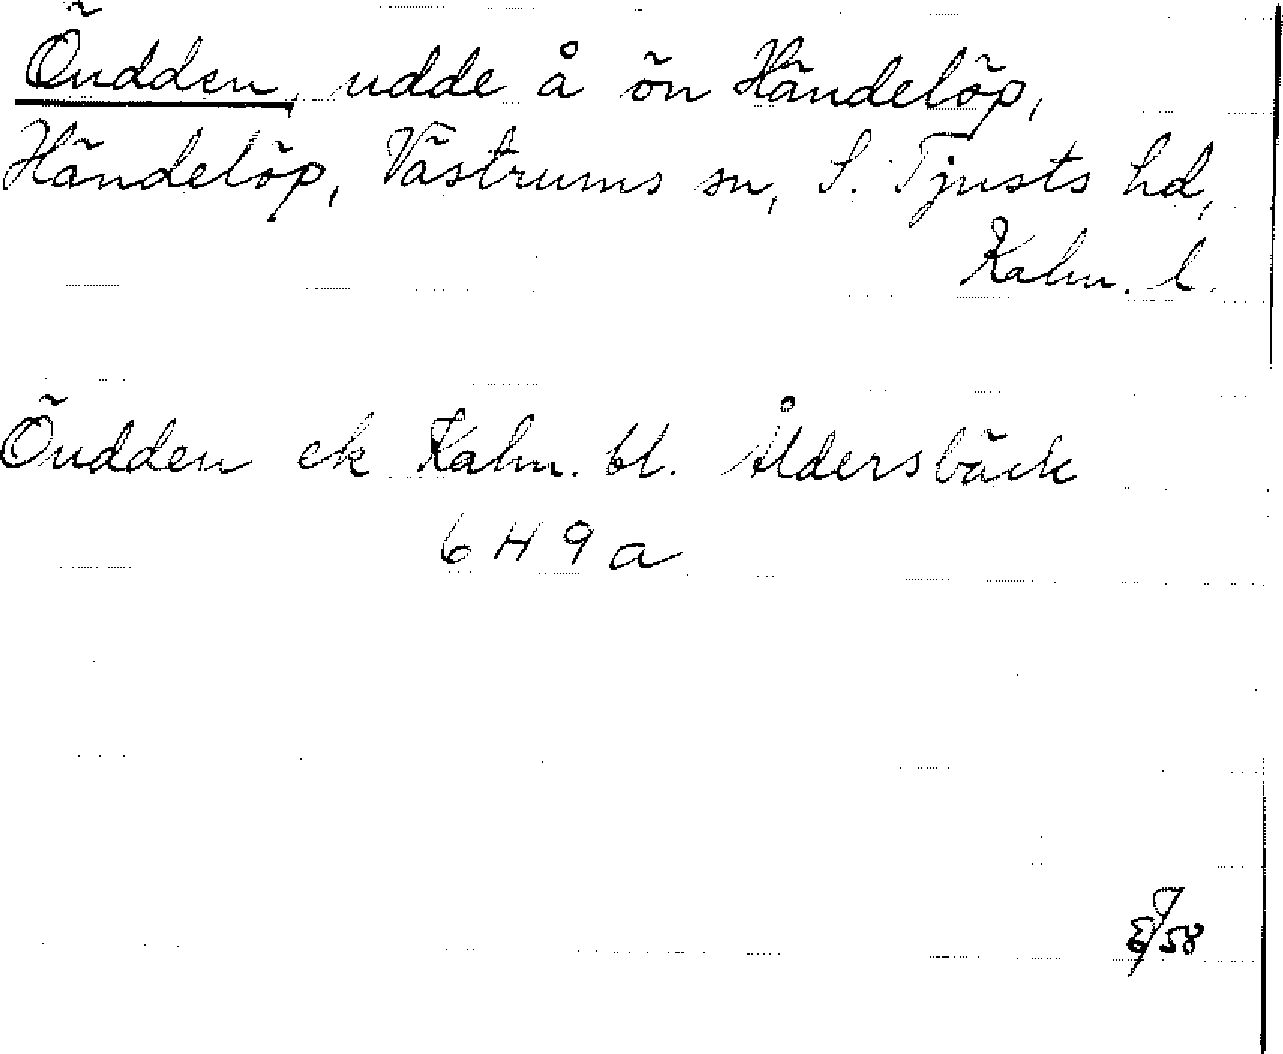 Öudden, udde å ön Händelöp,
Händelöp, Västrums sn, S. Tjusts hd,
Kalm. l.
Öudden ek Kalm. bl. Åldersbäck
6 H 9 a